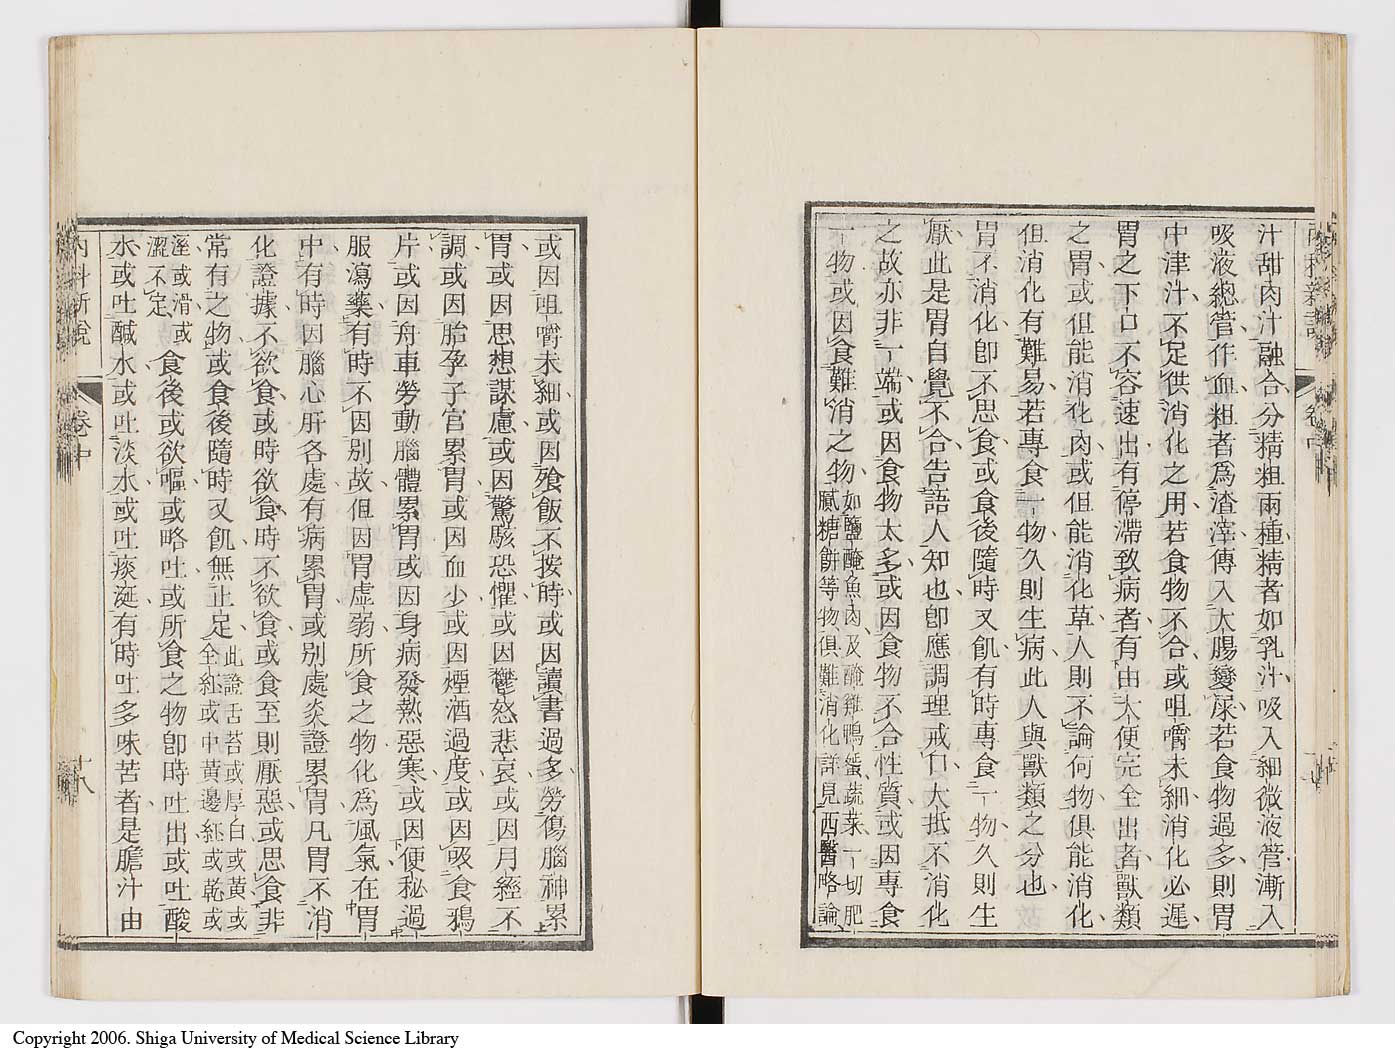 汁甜肉汁融合分精粗兩種精者如乳汁吸入細微液管漸入
吸液總管作血粗者爲渣滓傳入大腸變屎若食物過多則胃
中津汁不足供消化之用若食物不合或咀嚼未細消化必遲
胃之下口不容速出有停滯致病者有由大便完全出者獸類
之胃或但能消化肉或但能消化草人則不論何物俱能消化
但消化有難易若專食一物久則生病此人與獸類之分也
胃不消化卽不思食或食後隨時又飢有時專食一物久則生
厭此是胃自覺不合告語人知也卽應調理戒口大抵不消化
之故亦非一端或因食物太多或因食物不合性質或因專食
一物或因食難消之物如鹽醃魚肉及醃雞鴨蛋蔬菜一切肥
膩糖餅等物俱難消化詳見西醫略論
或因咀嚼未細或因飱飯不按時或因讀書過多勞傷腦神累
胃或因思想謀慮或因驚駭恐懼或因鬱怒悲哀或因月經不
調或因胎孕子宮累胃或因血少或因煙酒過度或因吸食鴉
片或因舟車勞動腦體累胃或因身病發熱惡寒或因便秘過
服瀉藥有時不因別故但因胃虛弱所食之物化爲風氣在胃
中有時因腦心肝各處有病累胃或別處炎證累胃凡胃不消
化證據不欲食或時欲食時不欲食或食至則厭惡或思食非
常有之物或食後隨時又飢無止足此證舌苔或厚白或黃或
全紅或中黃邊紅或乾或
溼或滑或
澀不定食後或欲嘔或略吐或所食之物卽時吐出或吐酸
水或吐鹹水或吐淡水或吐痰涎有時吐多味苦者是膽汁由
內科新說
卷中
十八
Copyright 2006. Shiga University of Medical Science Library